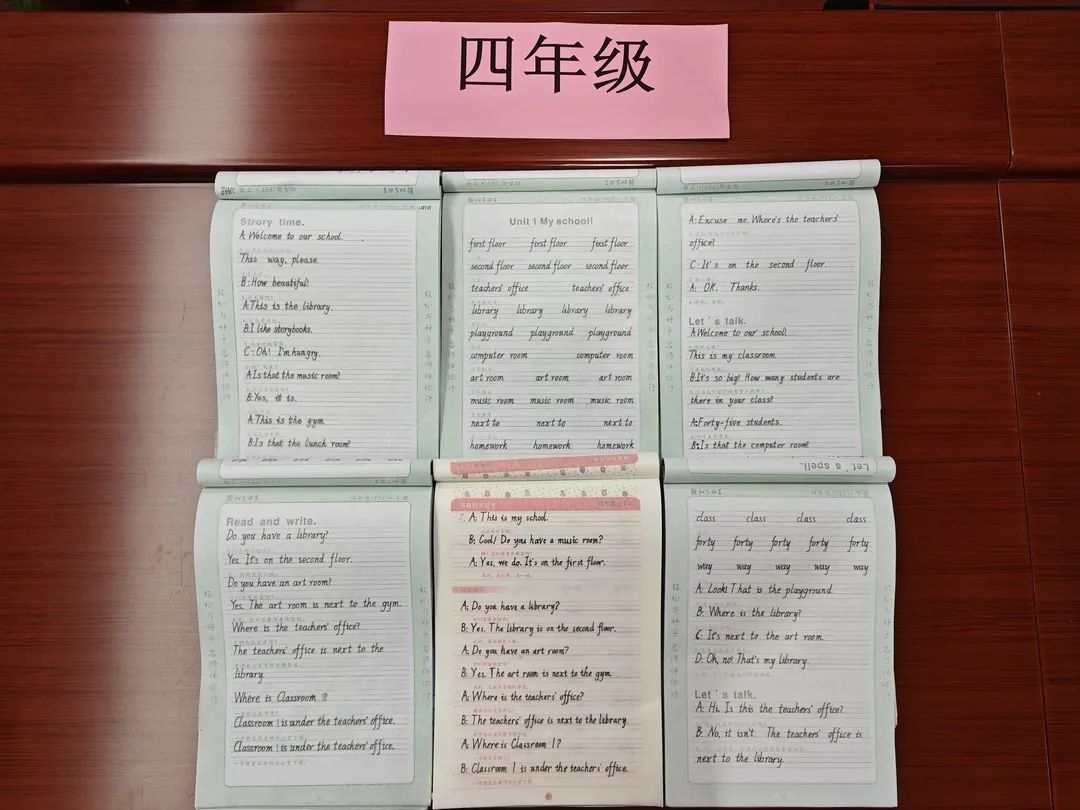 四年级
Strory time.
A: Welcome to our school.
This way, please.
B: How beautiful!
A: This is the library.
B: I like storybooks.
C: Oh! I'm hungry.
A: Is that the music room?
B: Yes, it is.
A: This is the gym.
B: Is that the lunch room?
Unit 1 My school!
first floor first floor first floor
second floor second floor second floor
teachers' office teachers' office
library library library library
playground playground playground
computer room computer room
art room art room art room
music room music room music room
next to next to next to
homework homework homework
A: Excuse me. Where's the teachers'
office?
C: It's on the second floor.
A: OK. Thanks.
Let's talk.
A: Welcome to our school!
This is my classroom.
B: It's so big! How many students are
there in your class?
A: Forty-five students.
B: Is that the computer room?
Read and write.
Do you have a library?
Yes. It's on the second floor.
Do you have an art room?
Yes. The art room is next to the gym.
Where is the teachers' office?
The teachers' office is next to the
library.
Where is Classroom 1?
Classroom 1 is under the teachers' office.
Classroom 1 is under the teachers' office.
7. A: This is my school.
B: Cool! Do you have a music room?
A: Yes, we do. It's on the first floor.
A: Do you have a library?
B: Yes. The library is on the second floor.
A: Do you have an art room?
B: Yes. The art room is next to the gym.
A: Where is the teachers' office?
B: The teachers' office is next to the library.
A: Where is Classroom 1?
B: Classroom 1 is under the teachers' office.
Let's spell.
class class class class
forty forty forty forty forty
way way way way way
A: Look! That is the playground.
B: Where is the library?
C: It's next to the art room.
D: Oh, no! That's my library.
Let's talk.
A: Hi. Is this the teachers' office?
B: No, it isn't. The teachers' office is
next to the library.